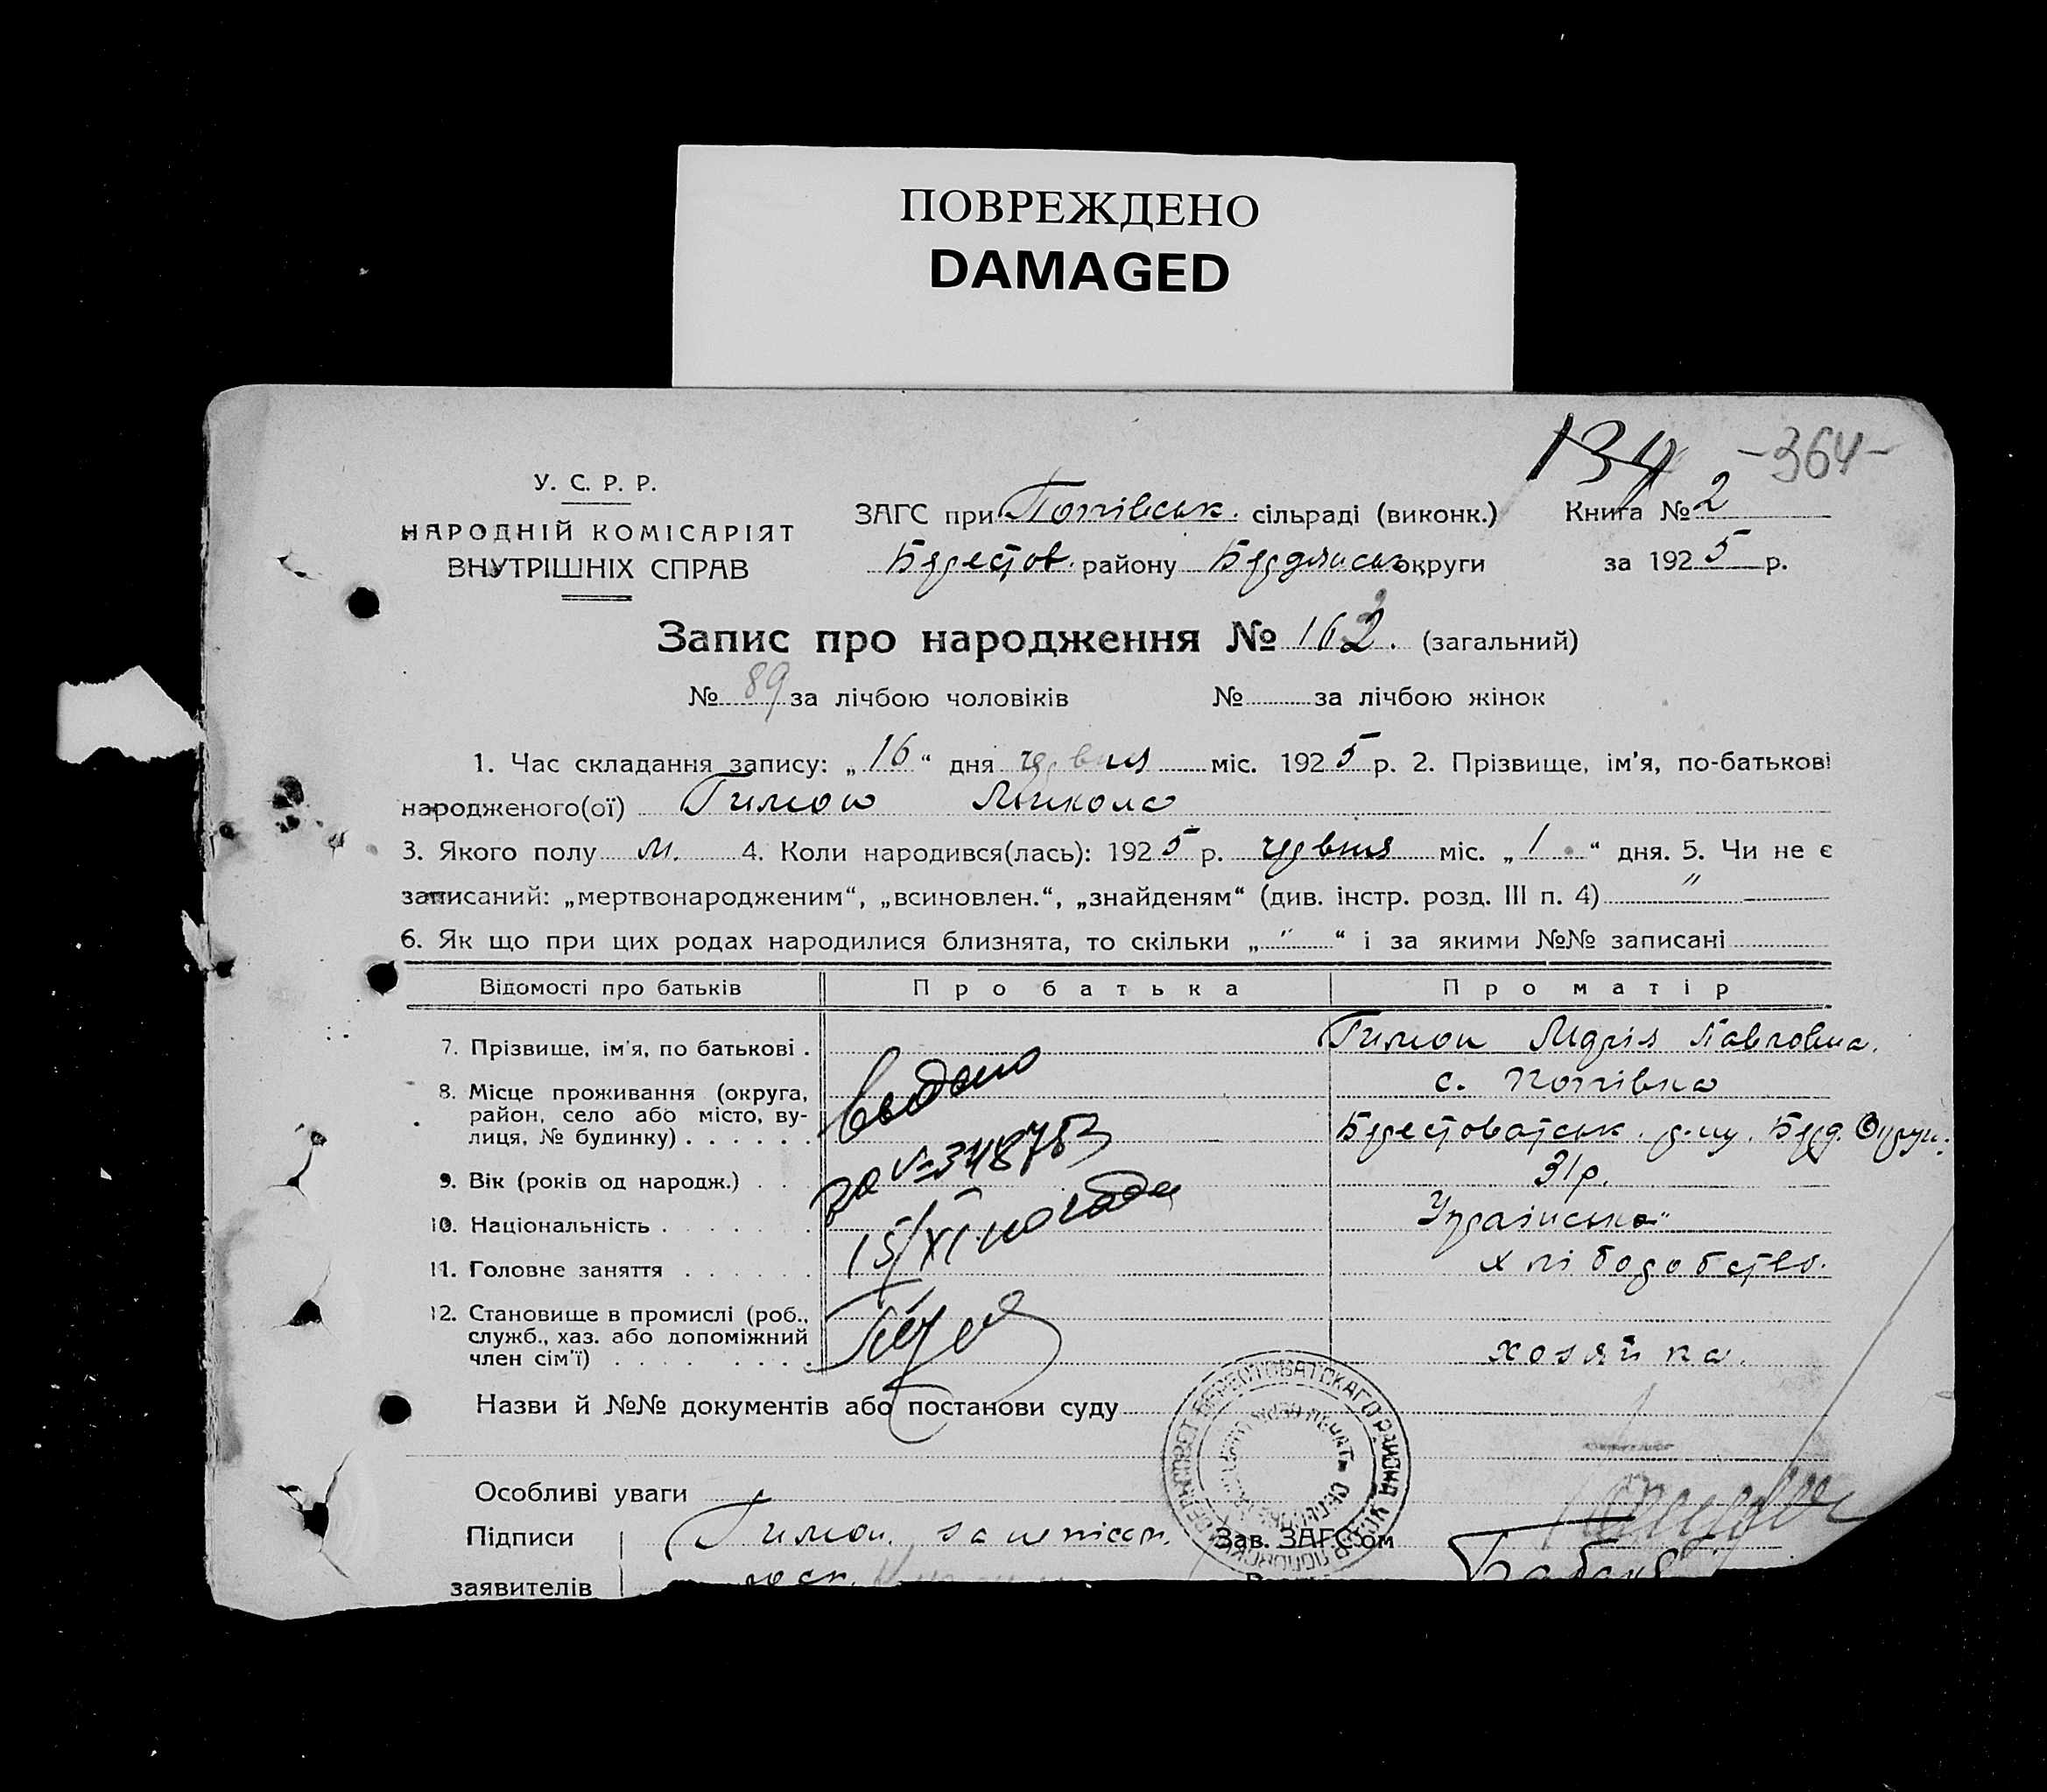 ПОВРЕЖДЕНО
DAMAGED
134 -364-
У. С. Р. Р.
НАРОДНІЙ КОМІСАРІЯТ
ВНУТРІШНІХ СПРАВ
ЗАГС при Попівськ. сільраді (виконк.) Книга № 2
Берестов. району Бердянськ округи за 1925 р.
Запис про народження № 162. (загальний)
№ 89 за лічбою чоловіків № за лічбою жінок
1. Час складання запису: „16“ дня червня міс. 1925 р. 2. Прізвище, ім'я, по-батькові
народженого(ої) Гимон Микола
3. Якого полу м. 4. Коли народився(лась): 1925 р. червня міс. „1“ дня. 5. Чи не є
записаний: „мертвонародженим“, „всиновлен.“, „знайденям“ (див. інстр. розд. III п. 4) "
6. Як що при цих родах народилися близнята, то скільки „ " “ і за якими №№ записані
Відомості про батьків Про батька Про матір
7. Прізвище, ім'я, по батькові . Гимон Марія Павловна.
8. Місце проживання (округа, район, село або місто, вулиця, № будинку) . . . . . . с. Попівка
Берестоватськ. р-ну. Берд. Округ.
9. Вік (років од народж.) . . . 31 р.
10. Національність . . . . . . Українська
11. Головне заняття . . . . . . хліборобство.
12. Становище в промислі (роб., служб., хаз. або допоміжний член сім'ї) . . . . . . хозяйка.
Видано
за №348753
15/XI
Назви й №№ документів або постанови суду
Особливі уваги
Підписи Гимон. Зав. ЗАГС'ом
заявителів
БЕРЕСТОВАТСКАГО РАЙОНА